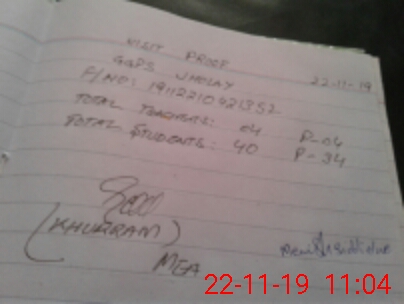 VISIT PROOF
GGPS JHOLAY 22-11-19
F/NO: 19112210421352
TOTAL TEACHERS: 04 P-04
TOTAL STUDENTS: 40 P-34
(KHURRAM)
MEA
22-11-19 11:04